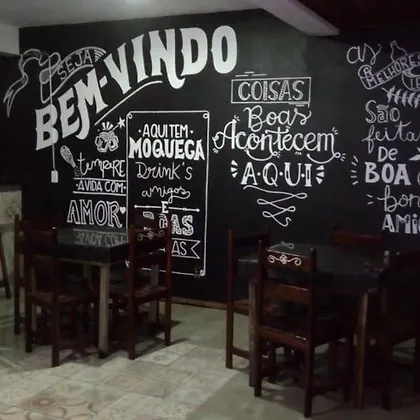 SEJA
BEM-VINDO
tempere
A VIDA COM
AMOR
AQUI TEM
MOQUECA
Drink's
amigos
E
COISAS
Boas
Acontecem
AQUI
as
MELHORES
São
feitas
DE
BOA